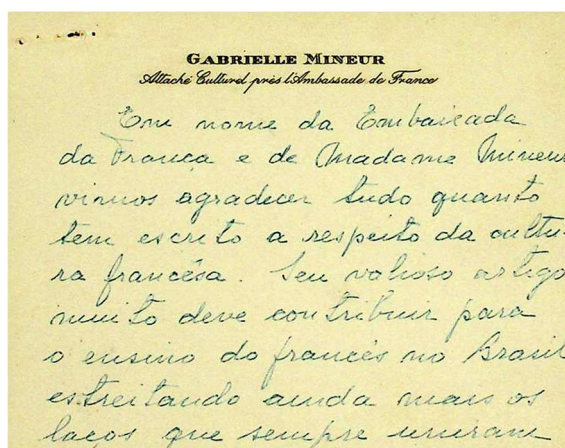 GABRIELLE MINEUR
Attaché Culturel près l'Ambassade de France
Em nome da Embaixada
da França e de Madame Mineur
vimos agradecer tudo quanto
tem escrito a respeito da cultu-
ra francêsa. Seu valioso artigo
muito deve contribuir para
o ensino do francês no Brasil
estreitando ainda mais os
laços que sempre uniram